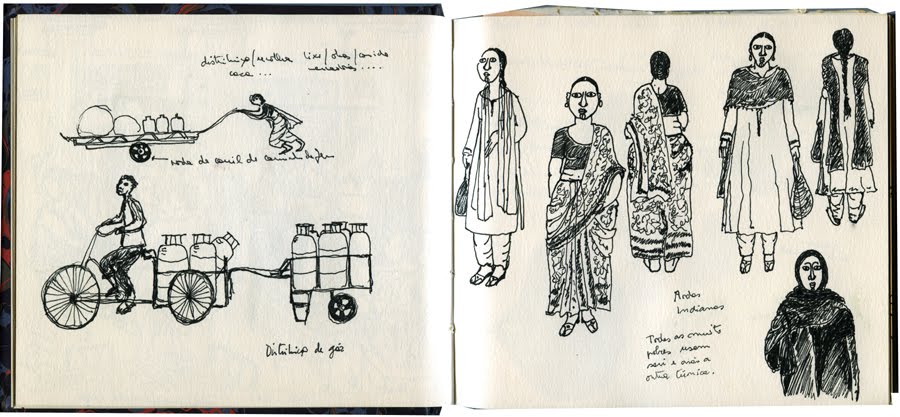 distribuiço/recolha lixo/obras/comida
roda de carril de caminho de
Distribuiço de gás
Modas
Indianas
Todas as muito
pobres usam
sari e a
outra túnica.